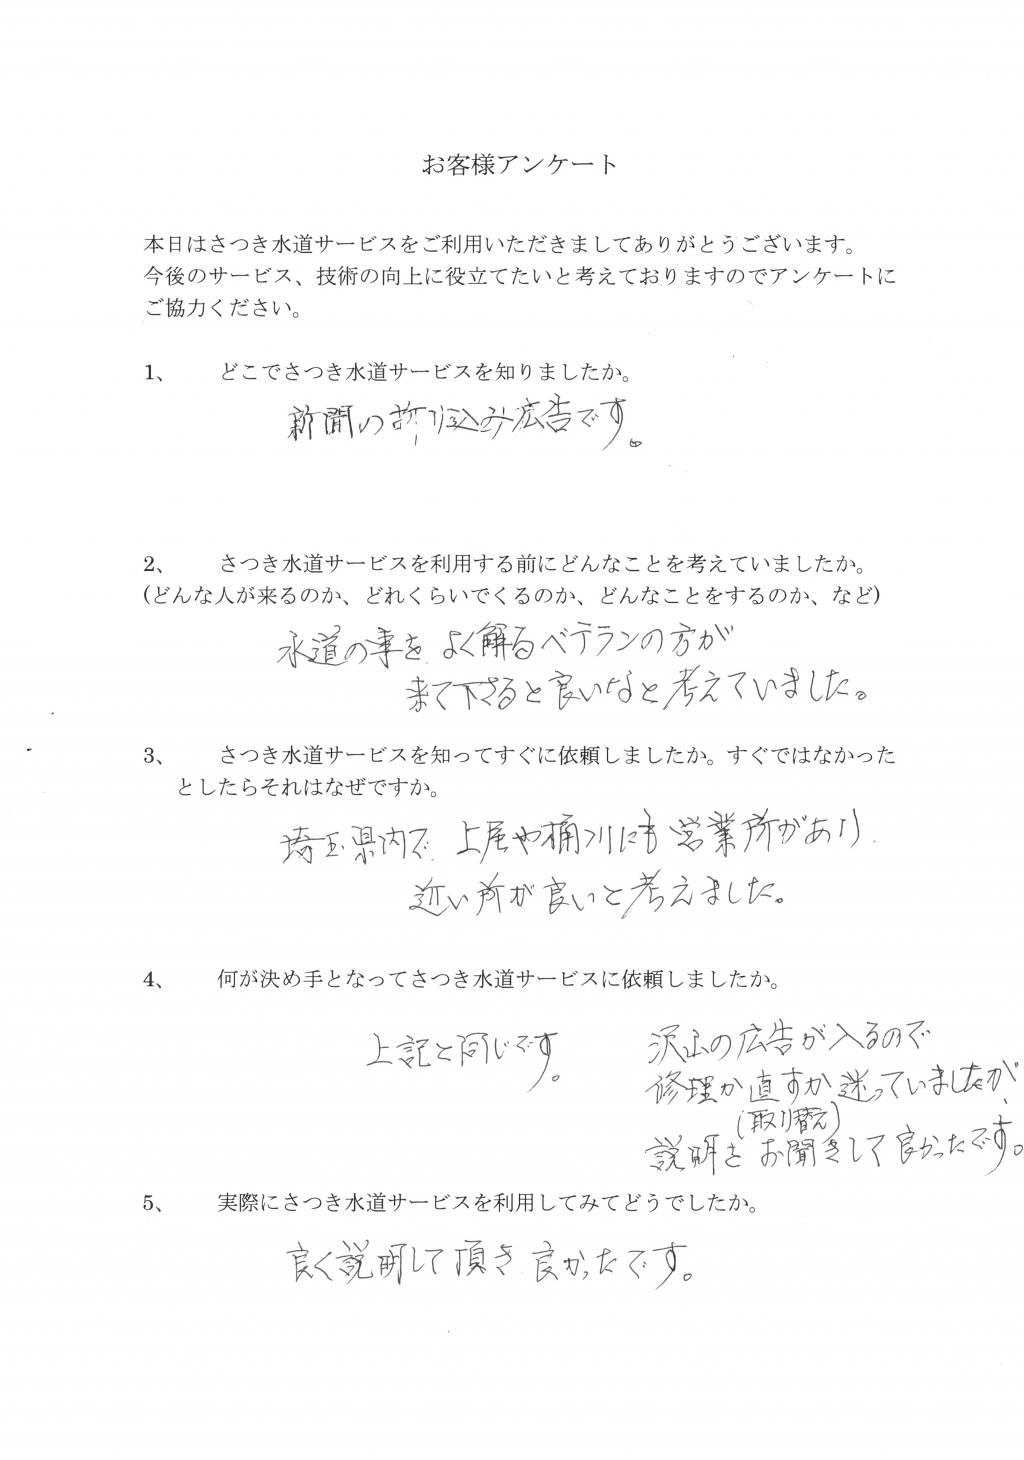 お客様アンケート
本日はさつき水道サービスをご利用いただきましてありがとうございます。
今後のサービス、技術の向上に役立てたいと考えておりますのでアンケートに
ご協力ください。
1、 どこでさつき水道サービスを知りましたか。
新聞の折り込み広告です。
2、 さつき水道サービスを利用する前にどんなことを考えていましたか。
(どんな人が来るのか、どれくらいでくるのか、どんなことをするのか、など)
水道の事を よく解るベテランの方が
来て下さると良いなと考えていました。
3、 さつき水道サービスを知ってすぐに依頼しましたか。すぐではなかった
としたらそれはなぜですか。
埼玉県内で 上尾や桶川にも営業所があり
近い所が良いと考えました。
4、 何が決め手となってさつき水道サービスに依頼しましたか。
上記と同じです。
沢山の広告が入るので
修理か直すか迷っていましたが、
(取り替え)
説明をお聞きして良かったです。
5、 実際にさつき水道サービスを利用してみてどうでしたか。
良く説明して頂き 良かったです。